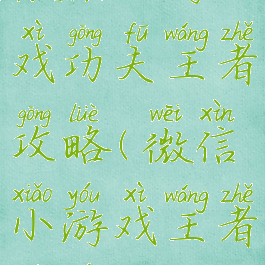 xì gōng fū wáng zhě
戏功夫王者
gōng lüè wēi xìn
攻略(微信
xiǎo yóu xì wáng zhě
小游戏王者